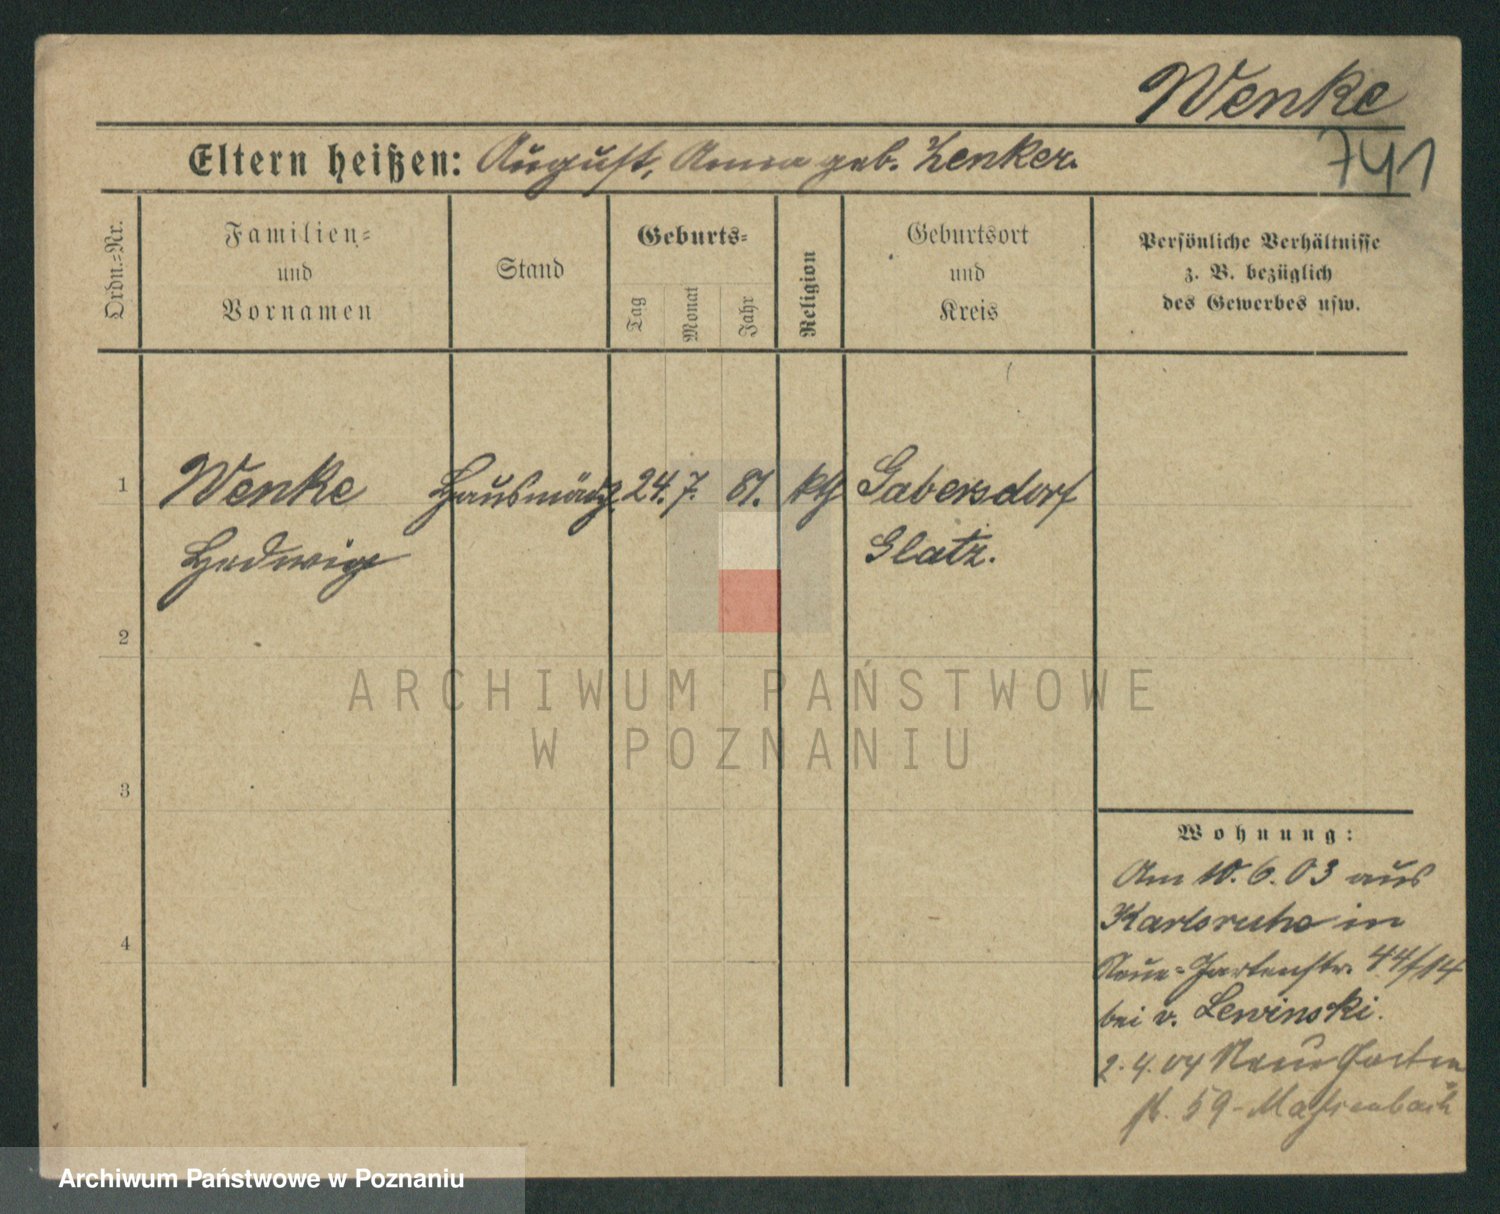 Wenke
741
Eltern heißen: August, Anna geb. Zenker.
Ordn.=Nr.
Familien=
und
Vornamen
Stand
Geburts=
Tag
Monat
Jahr
Religion
Geburtsort
und
Kreis
Persönliche Verhältnisse
z. B. bezüglich
des Gewerbes usw.
1 Wenke Hausmädg. 24. 7. 81. kth Gabersdorf
Hedwig Glatz.
2
3
4
Wohnung:
Am 10. 6. 03 aus
Karlsruhe in
Neue=Gartenstr. 44/14
bei v. Lewinski.
2. 4. 04 Neue Garten
str. 59 -
ARCHIWUM PAŃSTWOWE
W POZNANIU
Archiwum Państwowe w Poznaniu